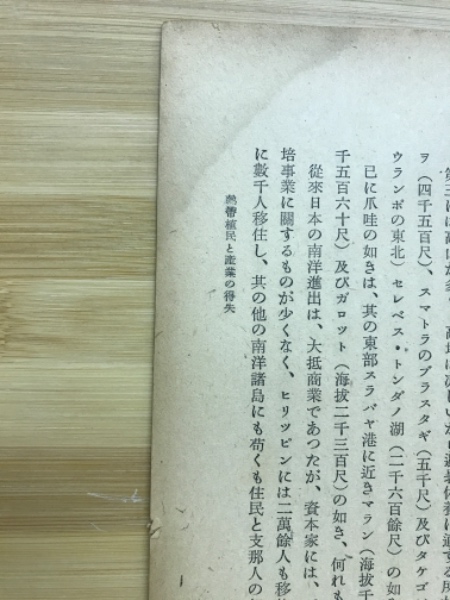 ヲ（四千五百尺）、スマトラのブラスタギ（五千尺）及びタケゴ
ウランボの東北）セレベス・トンダノ湖（二千六百餘尺）の如
已に爪哇の如きは、其の東部スラバヤ港に近きマラン（海拔千
千五百六十尺）及びガロット（海拔二千三百尺）の如き、何れも
從來日本の南洋進出は、大抵商業であつたが、資本家には、
培事業に關するものが少くなく、ヒリツピンには二萬餘人も移
に數千人移住し、其の他の南洋諸島にも苟くも住民と支那人の
熱帶植民と產業の得失